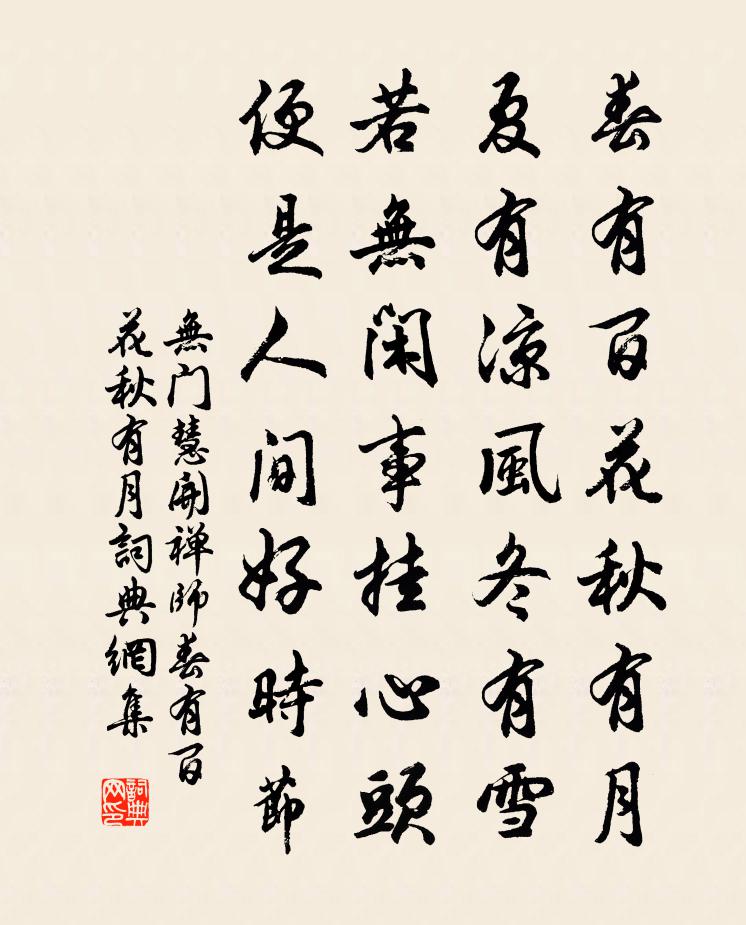 春有百花秋有月
夏有涼風冬有雪
若無閑事挂心頭
便是人间好時節
無门慧開禅師春有百
花秋有月詞典網集
詞典
网印